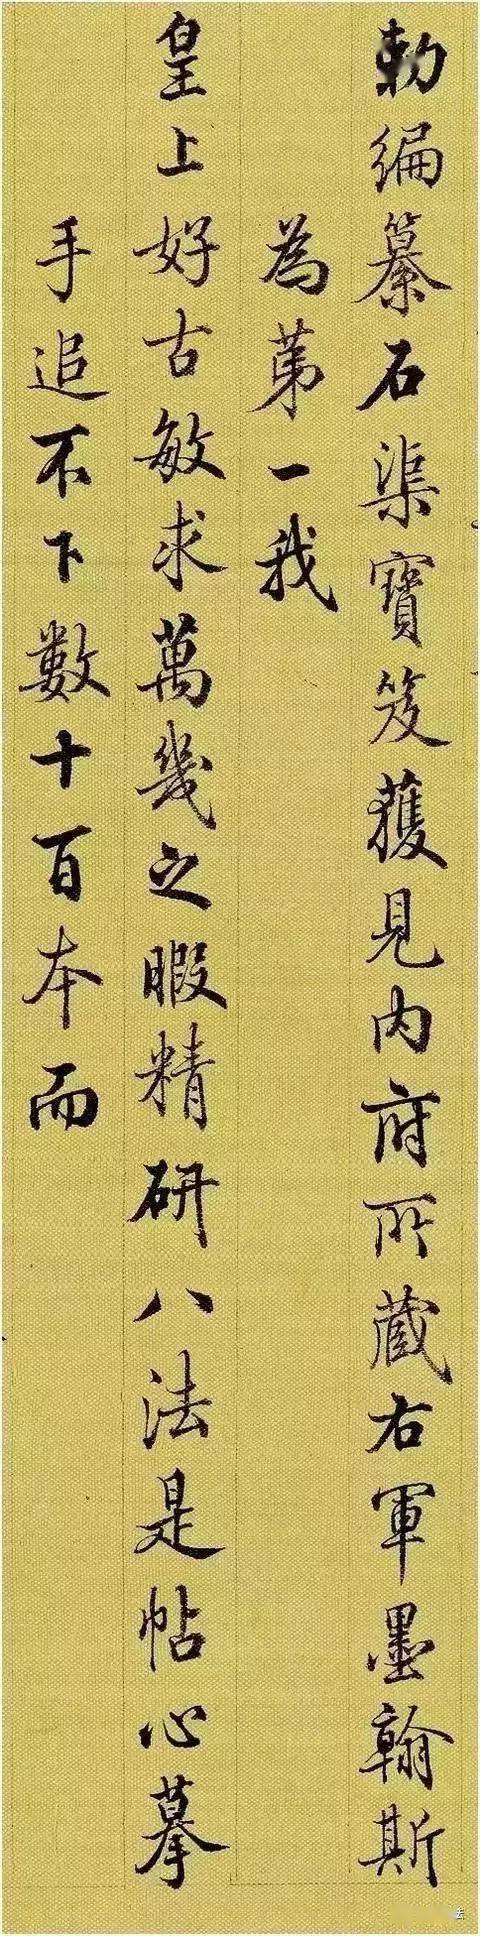 勅編纂石渠寶笈獲見內府所蔵右軍墨翰斯
為苐一我
皇上好古敏求萬幾之暇精研八法是帖心摹
手追不下數十百本而
去